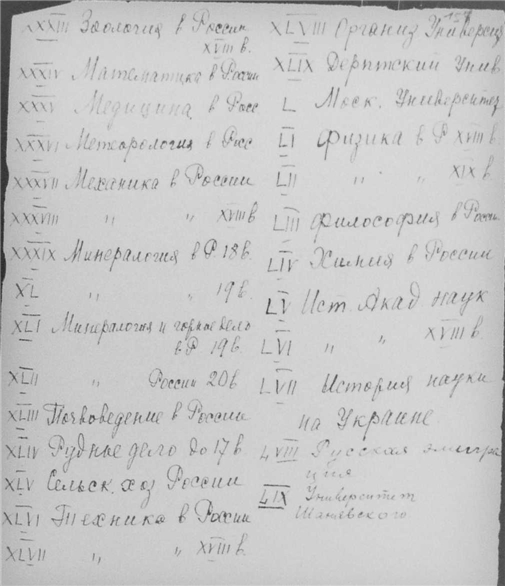 XXXIII Зоология в России
XVIII в.
XXXIV Математика в России
XXXV Медицина в Росс
XXXVI Метеорология в Росс
XXXVII Механика в России
XXXVIII " " XVIII в
XXXIX Минералогия в Р. 18 в.
XL " " 19 в.
XLI Минералогия и горное дело
в Р 19 в.
XLII " России 20 в
XLIII Почвоведение в России
XLIV Рудные дело до 17 в.
XLV Сельск. хоз России
XLVI Техника в России
XLVII " " XVIII в.
XLVIII Организ Университ
XLIX Дерптский Унив.
L Моск. Университет
LI Физика в Р XVIII в.
LII " " XIX в
LIII Философия в России
LIV Химия в России
LV Ист. Акад наук
LVI " " XVIII в.
LVII История науки
на Украине
LVIII Русская эмигра
ция
LIX Университет
Шанявского